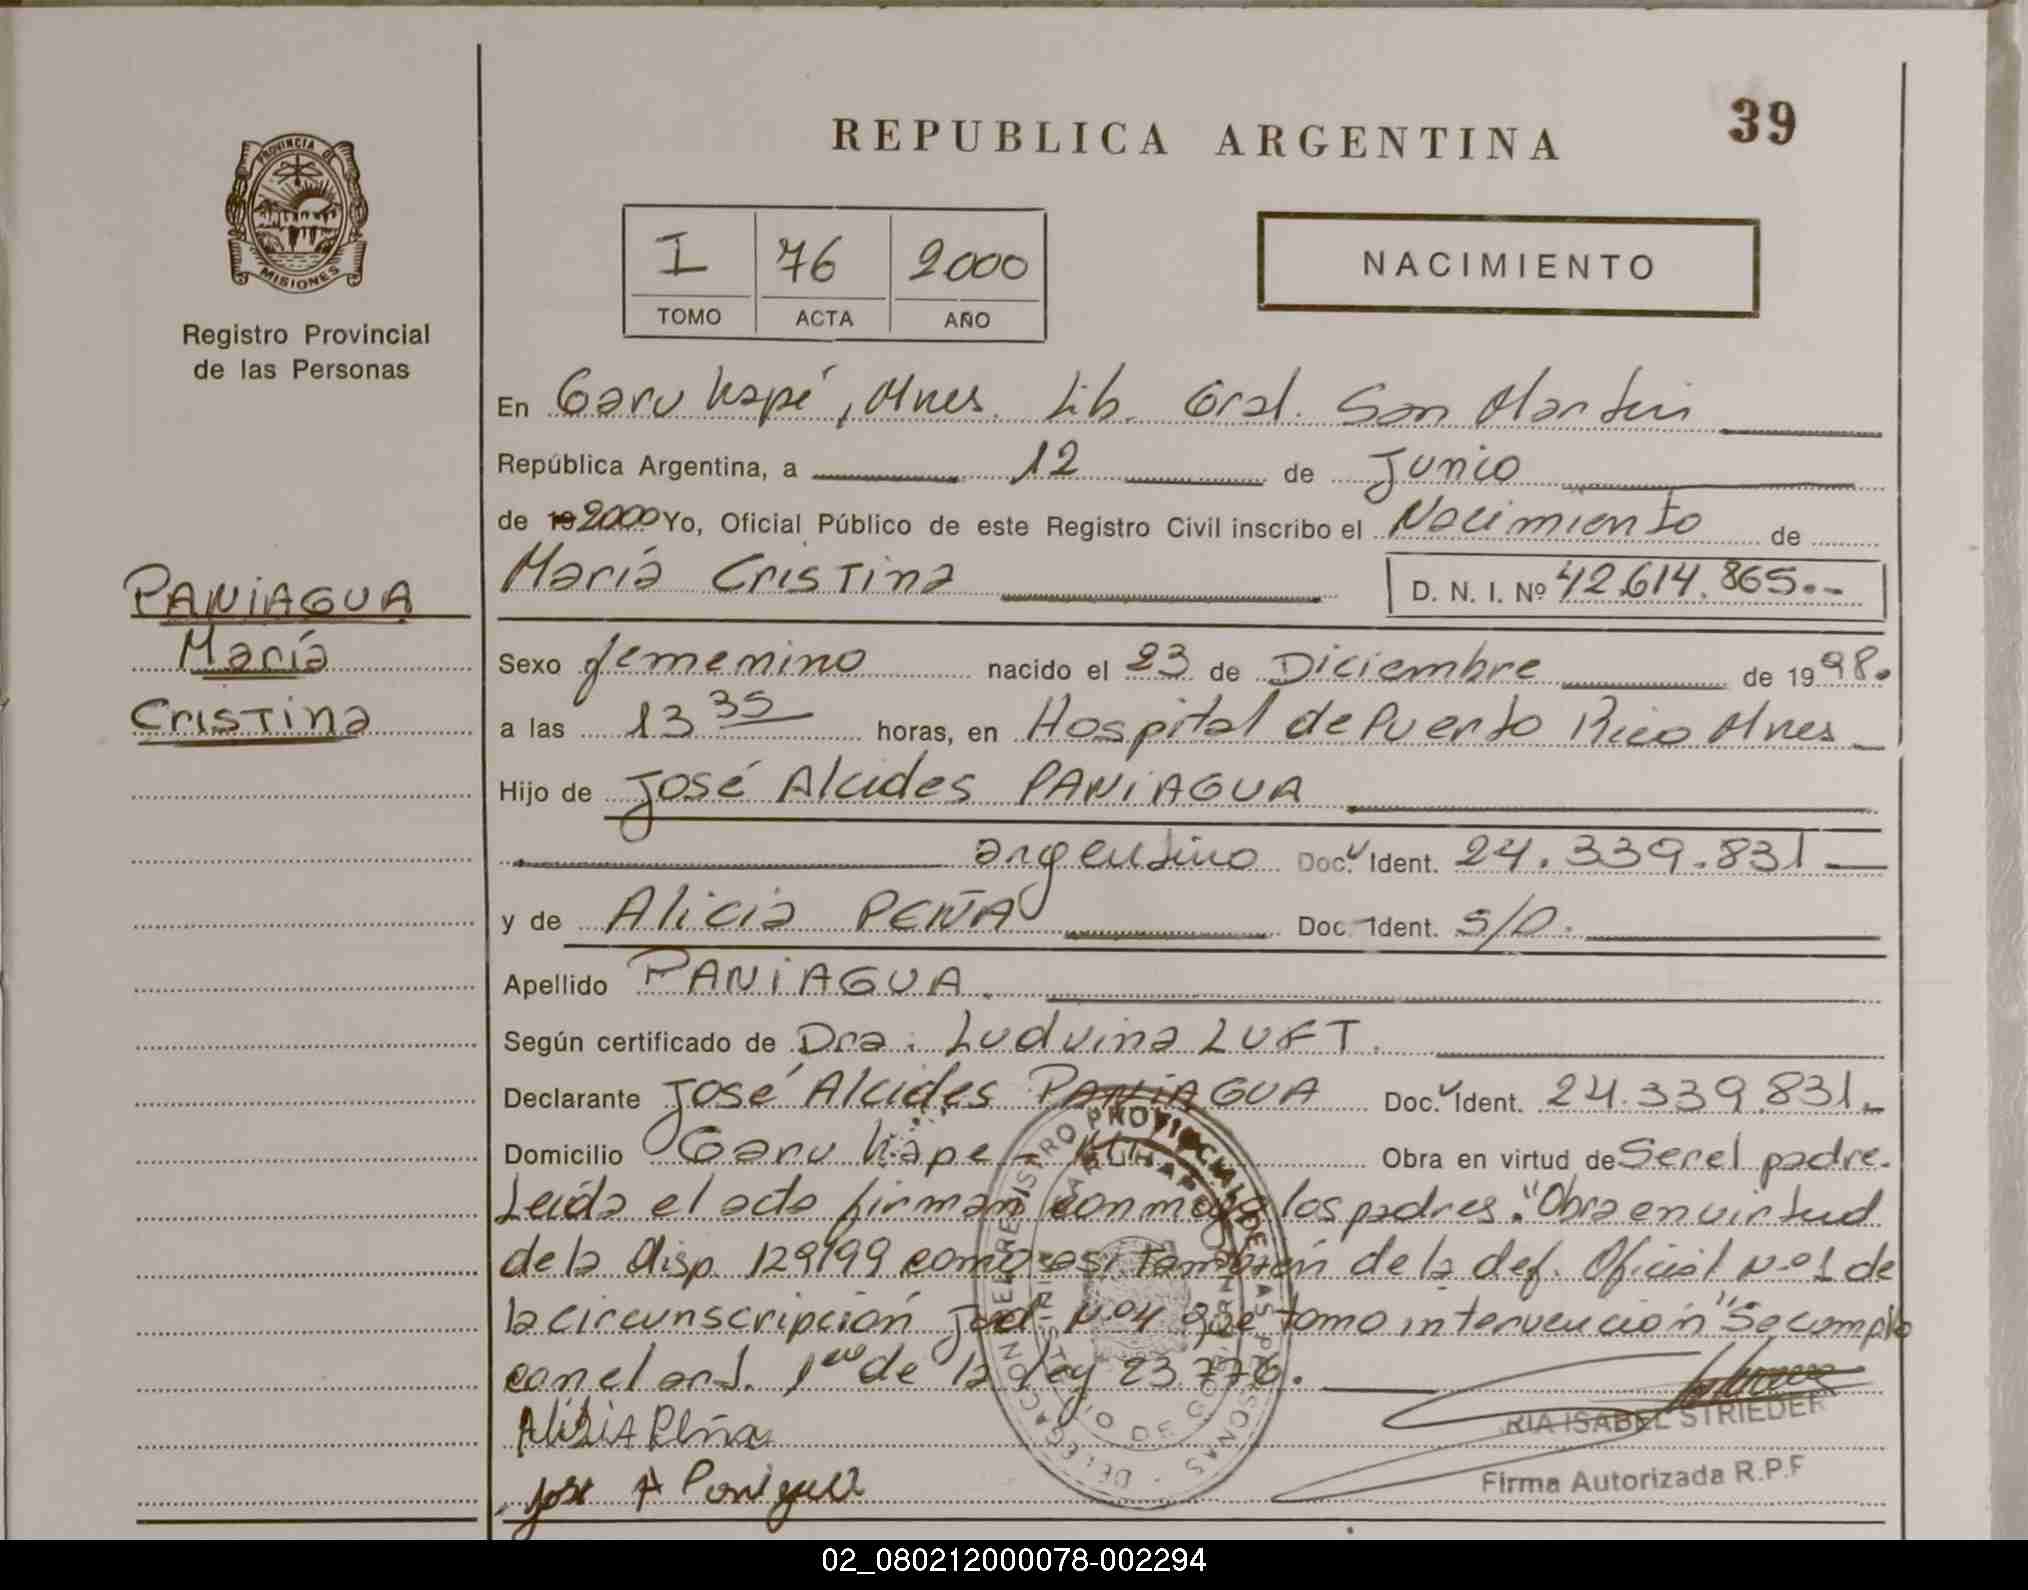 REPUBLICA ARGENTINA
39
PROVINCIA DE
MISIONES
Registro Provincial
de las Personas
I 76 2000
TOMO ACTA AÑO
NACIMIENTO
En Garuhapé, Mnes. Lib. Gral. San Martin
República Argentina, a 12 de Junio
de 19 2000 Yo, Oficial Público de este Registro Civil inscribo el Nacimiento de
María Cristina D. N. I. Nº 42.614.865.-
PANIAGUA
María
Cristina
Sexo femenino nacido el 23 de Diciembre de 1998.
a las 13 35 horas, en Hospital de Puerto Rico Mnes
Hijo de José Alcides PANIAGUA
argentino Doc. Ident. 24.339.831
y de Alicia PEÑA Doc. Ident. S/D.
Apellido PANIAGUA.
Según certificado de Dra. Luduina LUFT.
Declarante José Alcides PANIAGUA Doc. Ident. 24.339.831.-
Domicilio Garuhape - Obra en virtud de Ser el padre.
Leida el acta firman conmigo los padres. "Obra en virtud
de la disp. 129/99 como asi tambien de la def. Oficial Nº 1 de
la circunscripción Jud. Nº 4 que tomo intervención" Se cumplio
con el art. 1º de la ley 23.776.
Alisia Peña
Jose A Paniagua
RIA ISABEL STRIEDER
Firma Autorizada R.P.P
02_080212000078-002294